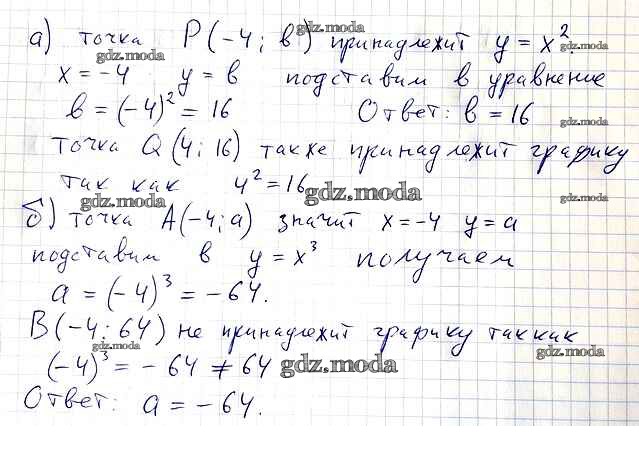 а) точка P(-4; в) принадлежит y = x².
x = -4 y = в подставим в уравнение
в = (-4)² = 16 Ответ: в = 16
точка Q(4; 16) также принадлежит графику
так как 4² = 16
б) точка A(-4; a) значит x = -4 y = a
подставим в y = x³ получаем
a = (-4)³ = -64.
B(-4; 64) не принадлежит графику так как
(-4)³ = -64 ≠ 64
Ответ: a = -64.
gdz.moda
gdz.moda
gdz.moda
gdz.moda
gdz.moda
gdz.moda
gdz.moda
gdz.moda
gdz.moda
gdz.moda
gdz.moda